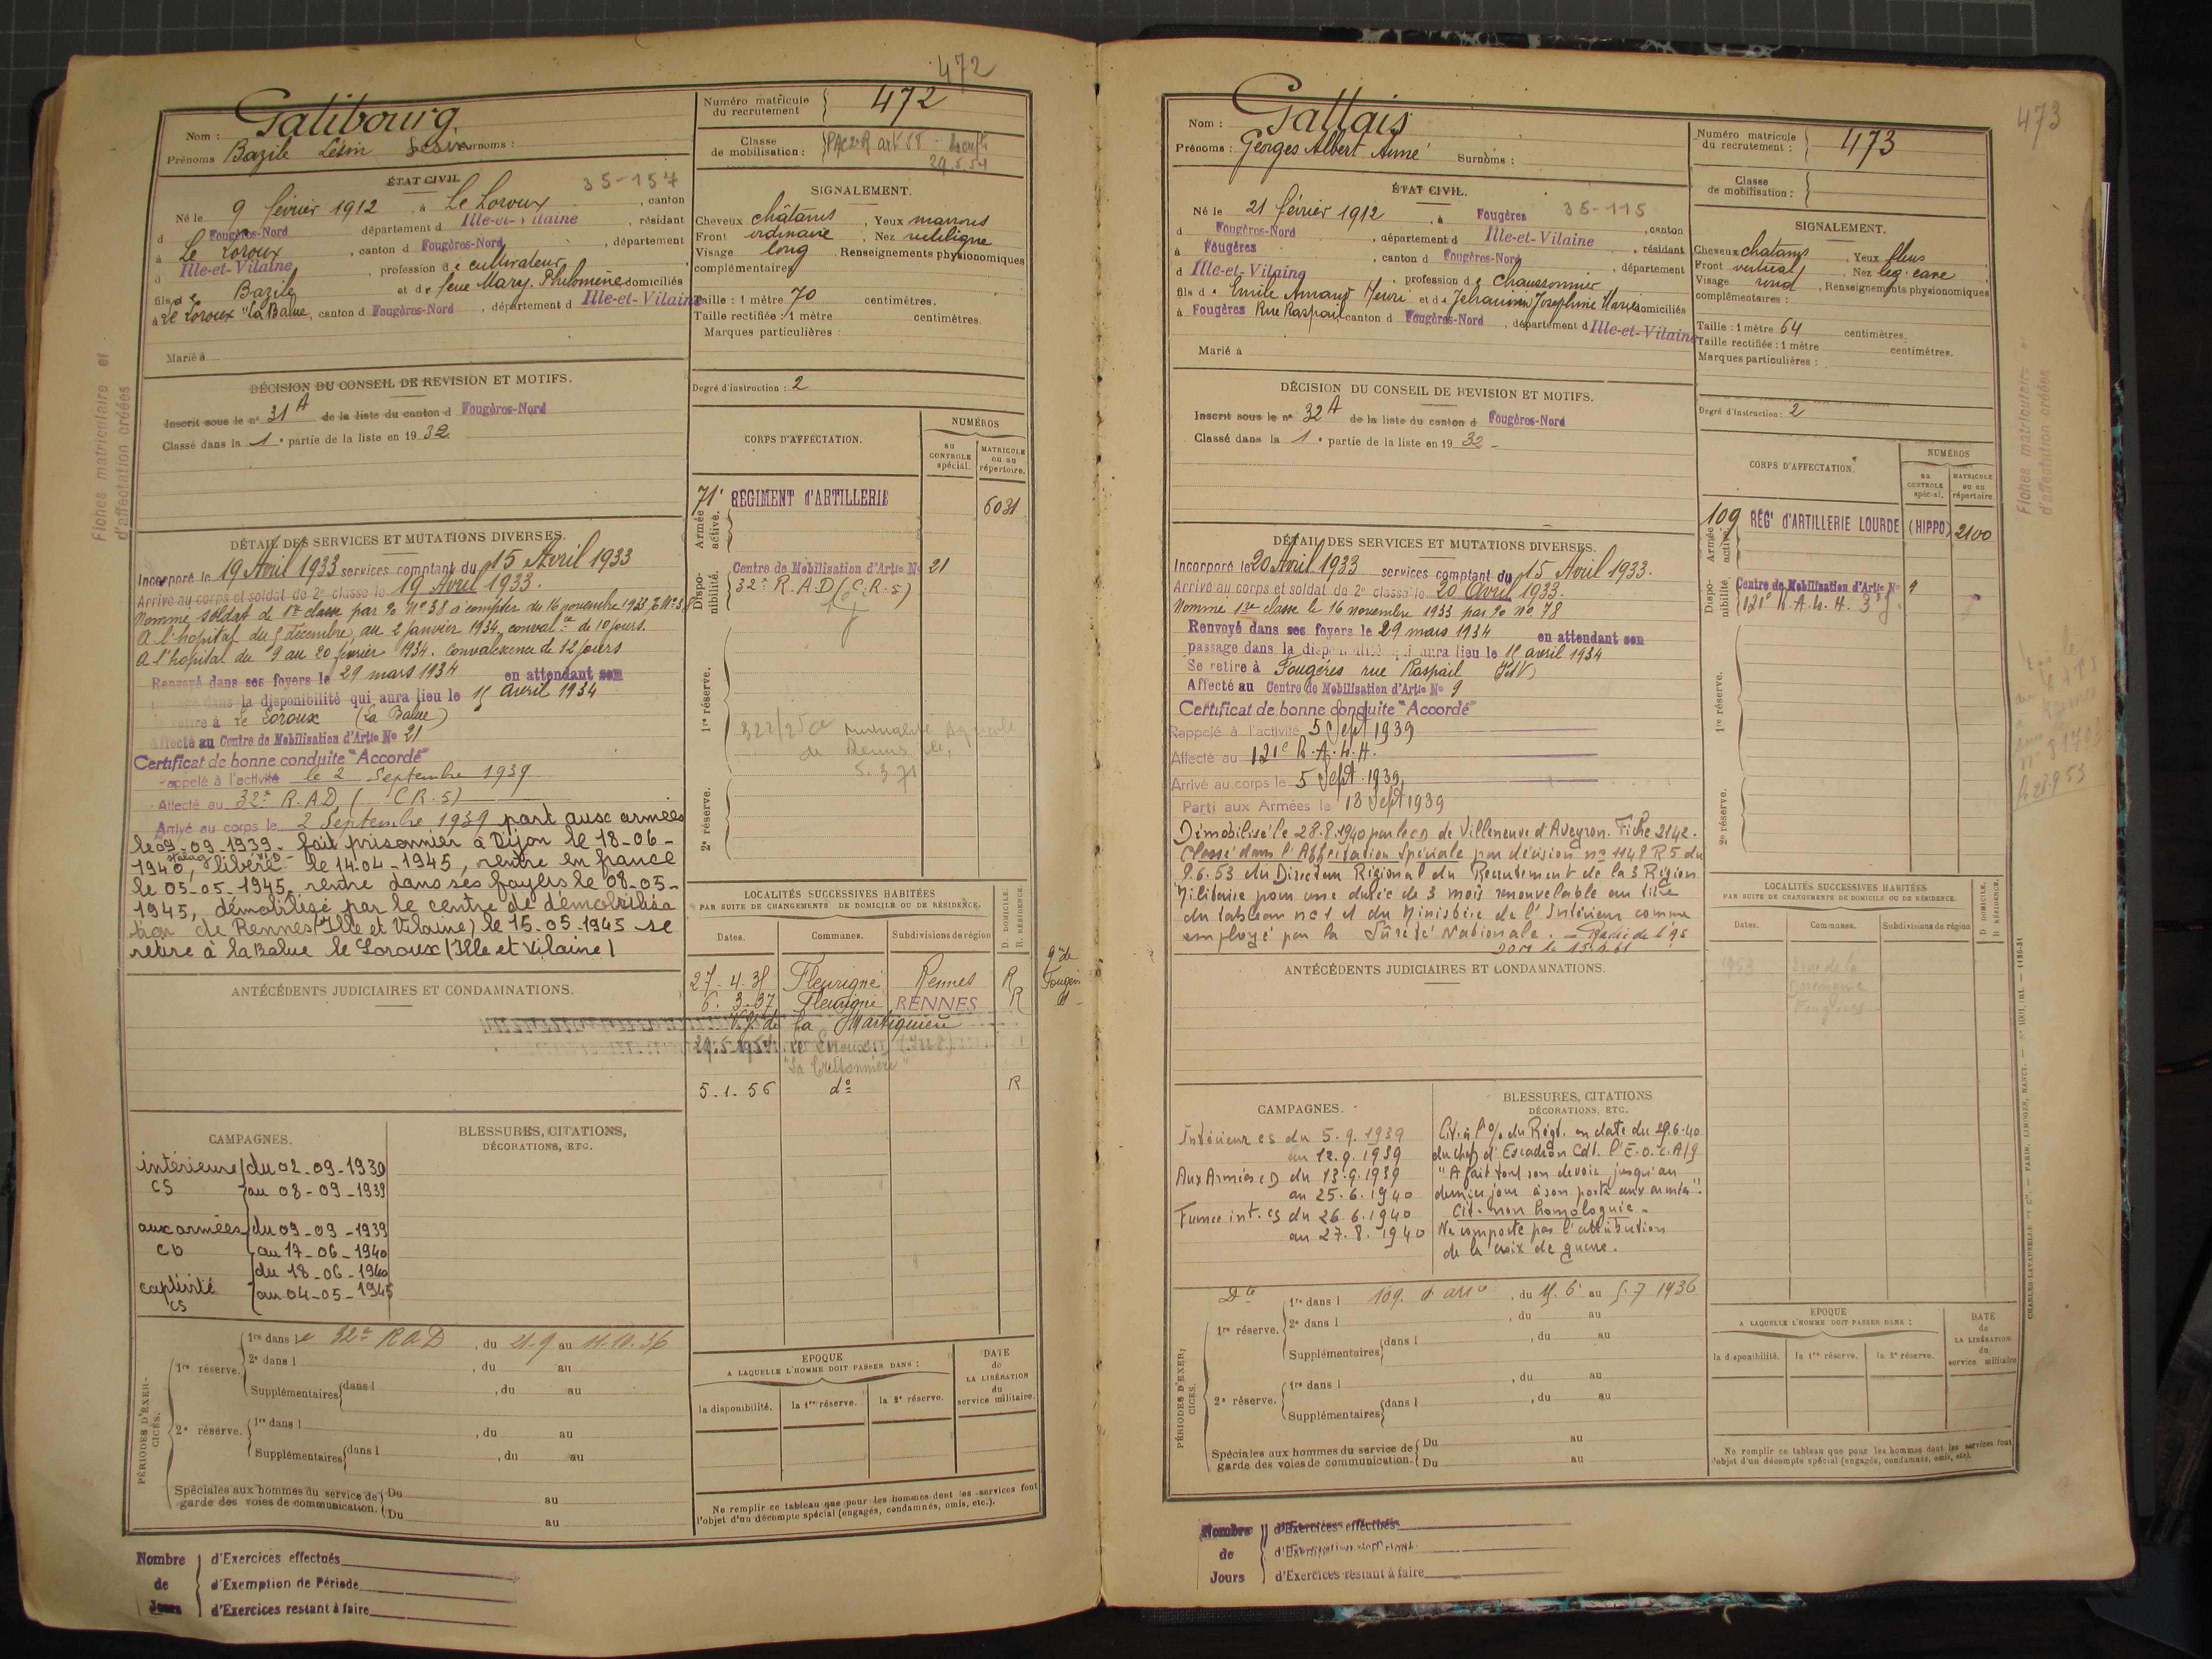 472
Nom : Galibourg
Prénoms Bazile Lésin Lésin Surnoms :
Numéro matricule du recrutement 472
Classe de mobilisation :
29.5.54
ÉTAT CIVIL 35-157
Né le 9 février 1912, à Le Loroux, canton
d Fougères-Nord département d Ille-et-Vilaine, résidant
à Le Loroux, canton d Fougères-Nord, département
d Ille-et-Vilaine, profession de cultivateur
fils de Bazile et de feue Mary. Philomène domiciliés
à Le Loroux "La Balue, canton d Fougères-Nord, département d Ille-et-Vilaine
Marié à
SIGNALEMENT.
Cheveux châtains, Yeux marrons
Front ordinaire, Nez rectiligne
Visage long. Renseignements physionomiques
complémentaires
Taille : 1 mètre 70 centimètres.
Taille rectifiée : 1 mètre centimètres.
Marques particulières :
Degré d'instruction : 2
DÉCISION DU CONSEIL DE REVISION ET MOTIFS.
Inscrit sous le n° 31 A de la liste du canton d Fougères-Nord
Classé dans la 1e partie de la liste en 1932
CORPS D'AFFECTATION.
NUMÉROS
au CONTROLE spécial.
MATRICULE ou au répertoire.
Armée active.
71e RÉGIMENT d'ARTILLERIE 6031
Disponibilité.
Centre de Mobilisation d'Artie No 21
32e R.A.D (C.R.S)
1re réserve.
Mutualité Agricole
de Rennes le
5.3.71
2e réserve.
DÉTAIL DES SERVICES ET MUTATIONS DIVERSES.
Incorporé le 19 Avril 1933 services comptant du 15 Avril 1933
Arrivé au corps et soldat de 2e classe le 19 Avril 1933.
Nommé soldat de 1re classe par Do No 38 à compter du 16 novembre 1933
A l'hopital du 5 décembre au 2 janvier 1934, conval.ce de 10 jours.
A l'hopital du 9 au 20 février 1934. convalescence de 12 jours
Renvoyé dans ses foyers le 29 mars 1934 en attendant son
passage dans la disponibilité qui aura lieu le 15 avril 1934
Se retire à Le Loroux (La Balue)
Affecté au Centre de Mobilisation d'Artie No 21
Certificat de bonne conduite "Accordé"
Rappelé à l'activité le 2 Septembre 1939
Affecté au 32e R.A.D. ( C.R.S)
Arrivé au corps le 2 Septembre 1939 part aux armées
le 09-09-1939. fait prisonnier à Dijon le 18-06-
1940, stalag libéré le 14-04-1945, rentre en france
le 05-05-1945, rentre dans ses foyers le 08-05-
1945, démobilisé par le centre de démobilisa
tion de Rennes (Ille et Vilaine) le 15.05.1945 se
retire à la Balue le Loroux (Ille et Vilaine)
ANTÉCÉDENTS JUDICIAIRES ET CONDAMNATIONS.
LOCALITÉS SUCCESSIVES HABITÉES
PAR SUITE DE CHANGEMENTS DE DOMICILE OU DE RÉSIDENCE.
D. DOMICILE. R. RÉSIDENCE.
Dates. Communes. Subdivisions de région
27-4-35 Fleurigné Rennes R
6.3-37 Fleurigné RENNES R
Vge de la Martiguière
29.5.1954 le Loroux
5.1.56 do R
gde Fougères
CAMPAGNES.
intérieure du 02-09-1939
CS au 08-09-1939
aux armées du 09-09-1939
CD au 17-06-1940
captivité du 18-06-1940
CS au 04-05-1945
BLESSURES, CITATIONS,
DÉCORATIONS, ETC.
PÉRIODES D'EXERCICES.
1re réserve.
1re dans le 32e RAD, du 21-9 au 11-10.36
2e dans l , du au
Supplémentaires dans l , du au
2e réserve.
1re dans l , du au
Supplémentaires dans l , du au
Spéciales aux hommes du service de garde des voies de communication.
Du au
Du au
EPOQUE
A LAQUELLE L'HOMME DOIT PASSER DANS :
la disponibilité. la 1re réserve. la 2e réserve.
DATE de LA LIBÉRATION du service militaire.
Ne remplir ce tableau que pour les hommes dont les services font
l'objet d'un décompte spécial (engagés, condamnés, omis, etc.).
Nombre de Jours
d'Exercices effectués
d'Exemption de Période
d'Exercices restant à faire
Fiches matriculaire et
d'affectation créées
473
Nom : Gallais
Prénoms : Georges Albert Aimé Surnoms :
Numéro matricule du recrutement : 473
Classe de mobilisation :
ÉTAT CIVIL. 35-115
Né le 21 février 1912, à Fougères, canton
d Fougères-Nord, département d Ille-et-Vilaine, résidant
à Fougères, canton d Fougères-Nord, département
d Ille-et-Vilaine, profession de chaussonnier
fils de Emile Amand Henri et de Jehannin Joséphine Marie domiciliés
à Fougères Rue Raspail canton d Fougères-Nord, département d Ille-et-Vilaine
Marié à
SIGNALEMENT.
Cheveux chatains, Yeux bleus
Front vertical, Nez leg. cave
Visage rond, Renseignements physionomiques
complémentaires :
Taille : 1 mètre 64 centimètres.
Taille rectifiée : 1 mètre centimètres.
Marques particulières :
Degré d'instruction : 2
DÉCISION DU CONSEIL DE REVISION ET MOTIFS.
Inscrit sous le n° 32 A de la liste du canton d Fougères-Nord
Classé dans la 1e partie de la liste en 1932
CORPS D'AFFECTATION.
NUMÉROS
au CONTROLE spécial.
MATRICULE ou au répertoire
Armée active.
109 RÉGt d'ARTILLERIE LOURDE (HIPPO) 2100
Disponibilité.
Centre de Mobilisation d'Artie No 9
121e R.A.L.H.
1re réserve.
2e réserve.
DÉTAIL DES SERVICES ET MUTATIONS DIVERSES.
Incorporé le 20 Avril 1933 services comptant du 15 Avril 1933.
Arrivé au corps et soldat de 2e classe le 20 Avril 1933.
Nommé 1re classe le 16 novembre 1933 par Do No 78
Renvoyé dans ses foyers le 29 mars 1934 en attendant son
passage dans la disponibilité qui aura lieu le 15 avril 1934
Se retire à Fougères rue Raspail (I&V)
Affecté au Centre de Mobilisation d'Artie No 9
Certificat de bonne conduite "Accordé"
Rappelé à l'activité 5 Sept 1939
Affecté au 121e R.A.L.H.
Arrivé au corps le 5 Sept. 1939
Parti aux Armées le 13 Sept 1939
Démobilisé le 28.8.1940 par le CD de Villeneuve d'Aveyron. Fiche 2142.
Classé dans l'Affectation Spéciale par décision no 1148 R5 du
9.6.53 du Directeur Régional du Recrutement de la 3 Région
Militaire pour une durée de 3 mois renouvelable au titre
du tableau no 1 et du Ministère de l'Intérieur comme
employé par la Sûreté Nationale. Radié de l'AS
ANTÉCÉDENTS JUDICIAIRES ET CONDAMNATIONS.
LOCALITÉS SUCCESSIVES HABITÉES
PAR SUITE DE CHANGEMENTS DE DOMICILE OU DE RÉSIDENCE.
D. DOMICILE. R. RÉSIDENCE.
Dates. Communes. Subdivisions de région
1953
Fougères
CAMPAGNES.
Intérieur CS du 5.9.1939
au 12.9.1939
Aux Armées CD du 13.9.1939
au 25.6.1940
int. CS du 26.6.1940
au 27.8.1940
BLESSURES, CITATIONS
DÉCORATIONS, ETC.
Cit. à l'o/ du Régt. en date du 29.6.40
du chef d'Escadron Cdt.
"A fait tout son devoir jusqu'au
dernier jour à son poste aux armées".
Cit. non homologuée.
Ne comporte pas l'attribution
de la croix de guerre.
PÉRIODES D'EXERCICES.
1re réserve.
1re dans l 109. d'artie, du 15.6 au 5.7 1936
2e dans l , du au
Supplémentaires dans l , du au
2e réserve.
1re dans l , du au
Supplémentaires dans l , du au
Spéciales aux hommes du service de garde des voies de communication.
Du au
Du au
EPOQUE
A LAQUELLE L'HOMME DOIT PASSER DANS :
la disponibilité. la 1re réserve. la 2e réserve.
DATE de LA LIBÉRATION du service militaire
Ne remplir ce tableau que pour les hommes dont les services font
l'objet d'un décompte spécial (engagés, condamnés, omis, etc.).
Nombre de Jours
d'Exercices effectués
d'Exercices restant à faire
Fiches matriculaire et
d'affectation créées
CHARLES-LAVAUZELLE ET Cie. — PARIS, LIMOGES, NANCY.